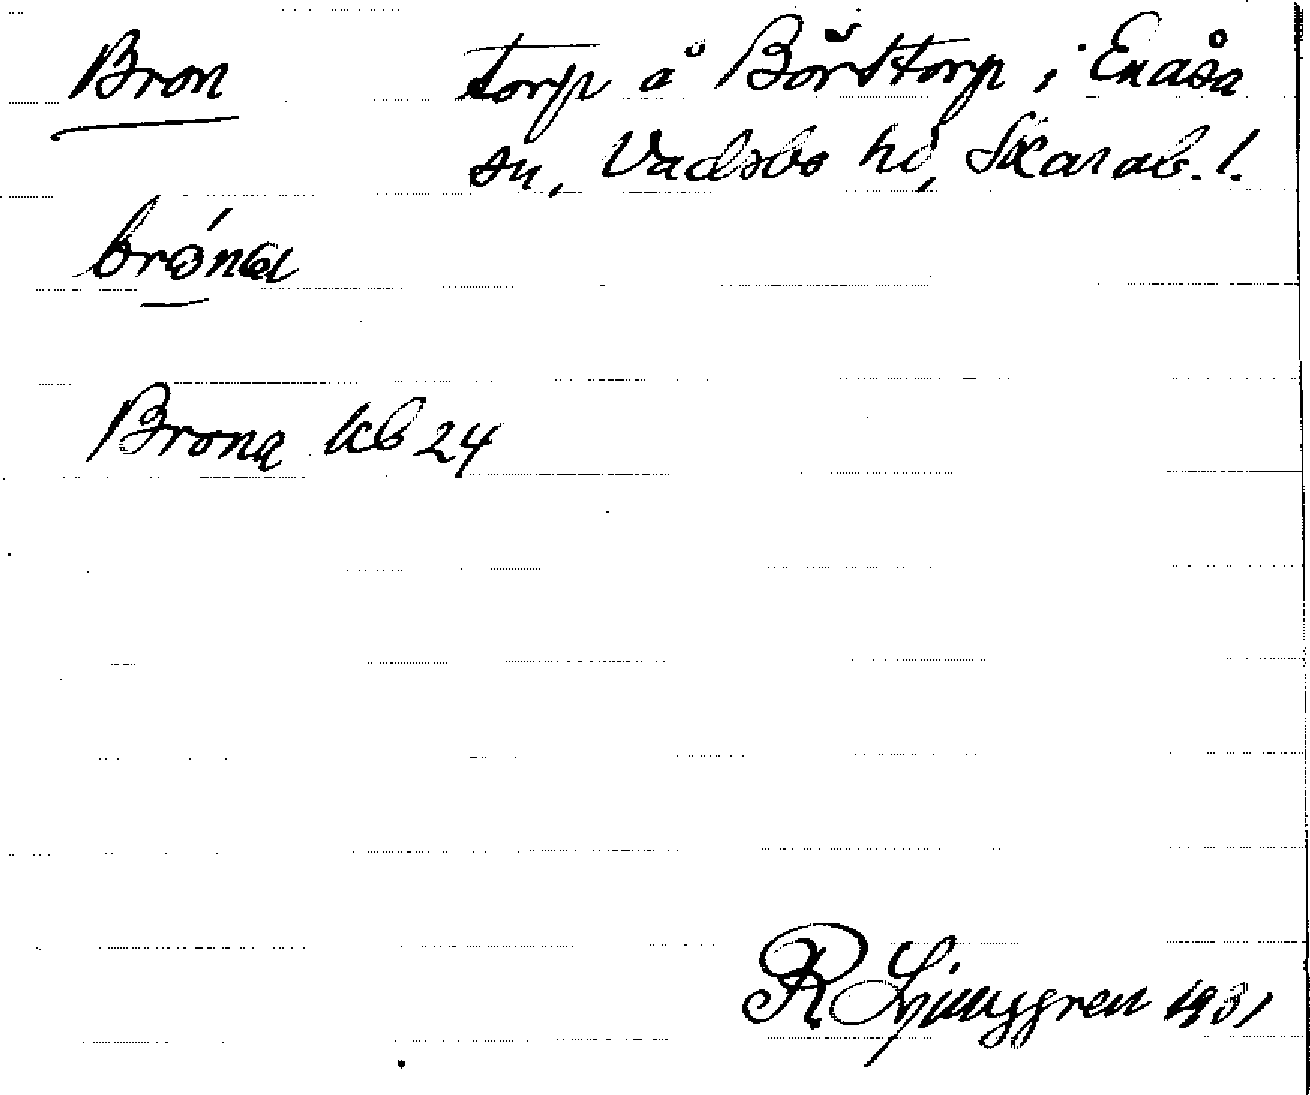 Bron torp å Börstorp i Enåsa
sn, Vadsbo hd, Skarab. l.
Brona kb 24
R Ljunggren 1931